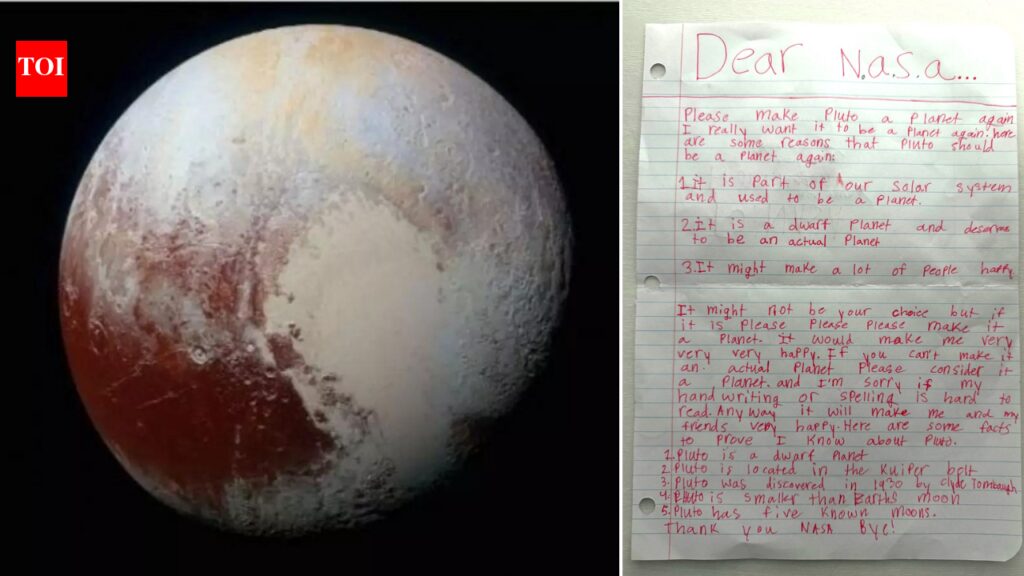 TOI
Dear N.a.s.a...
Please make Pluto a Planet again
I really want it to be a Planet again. here
are some reasons that Pluto should
be a Planet again:
1.It is Part of our solar system
and used to be a Planet.
2.It is a dwarf Planet and deserve
to be an actual Planet
3.It might make a lot of people happy
It might not be your choice but if
it is Please Please Please make it
a Planet. It would make me very
very very happy. If you can't make it
an actual Planet Please consider it
a Planet. and I'm sorry if my
hand writing or spelling is hard to
read. Any way it will make me and my
friends very happy. Here are some facts
to Prove I know about Pluto.
1.Pluto is a dwarf Planet
2.Pluto is located in the Kuiper belt
3.Pluto was discovered in 1930 by Clyde Tombaugh
4.Pluto is smaller than Earths moon
5.Pluto has five known moons.
Thank you NASA Bye!